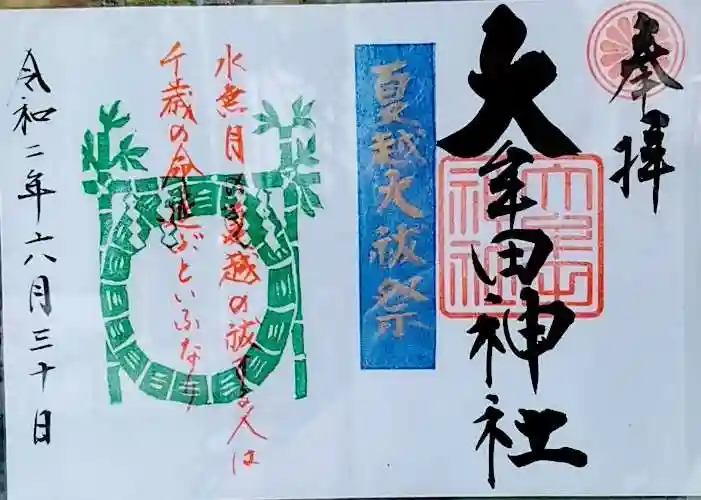 奉拝
大牟田神社
夏越大祓祭
水無月の夏越の祓する人は
千歳の命延ぶといふなり
令和二年六月三十日